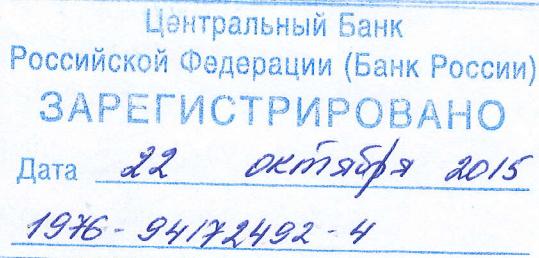 Центральный Банк
Российской Федерации (Банк России)
ЗАРЕГИСТРИРОВАНО
Дата 22 октября 2015
1976-94172492-4